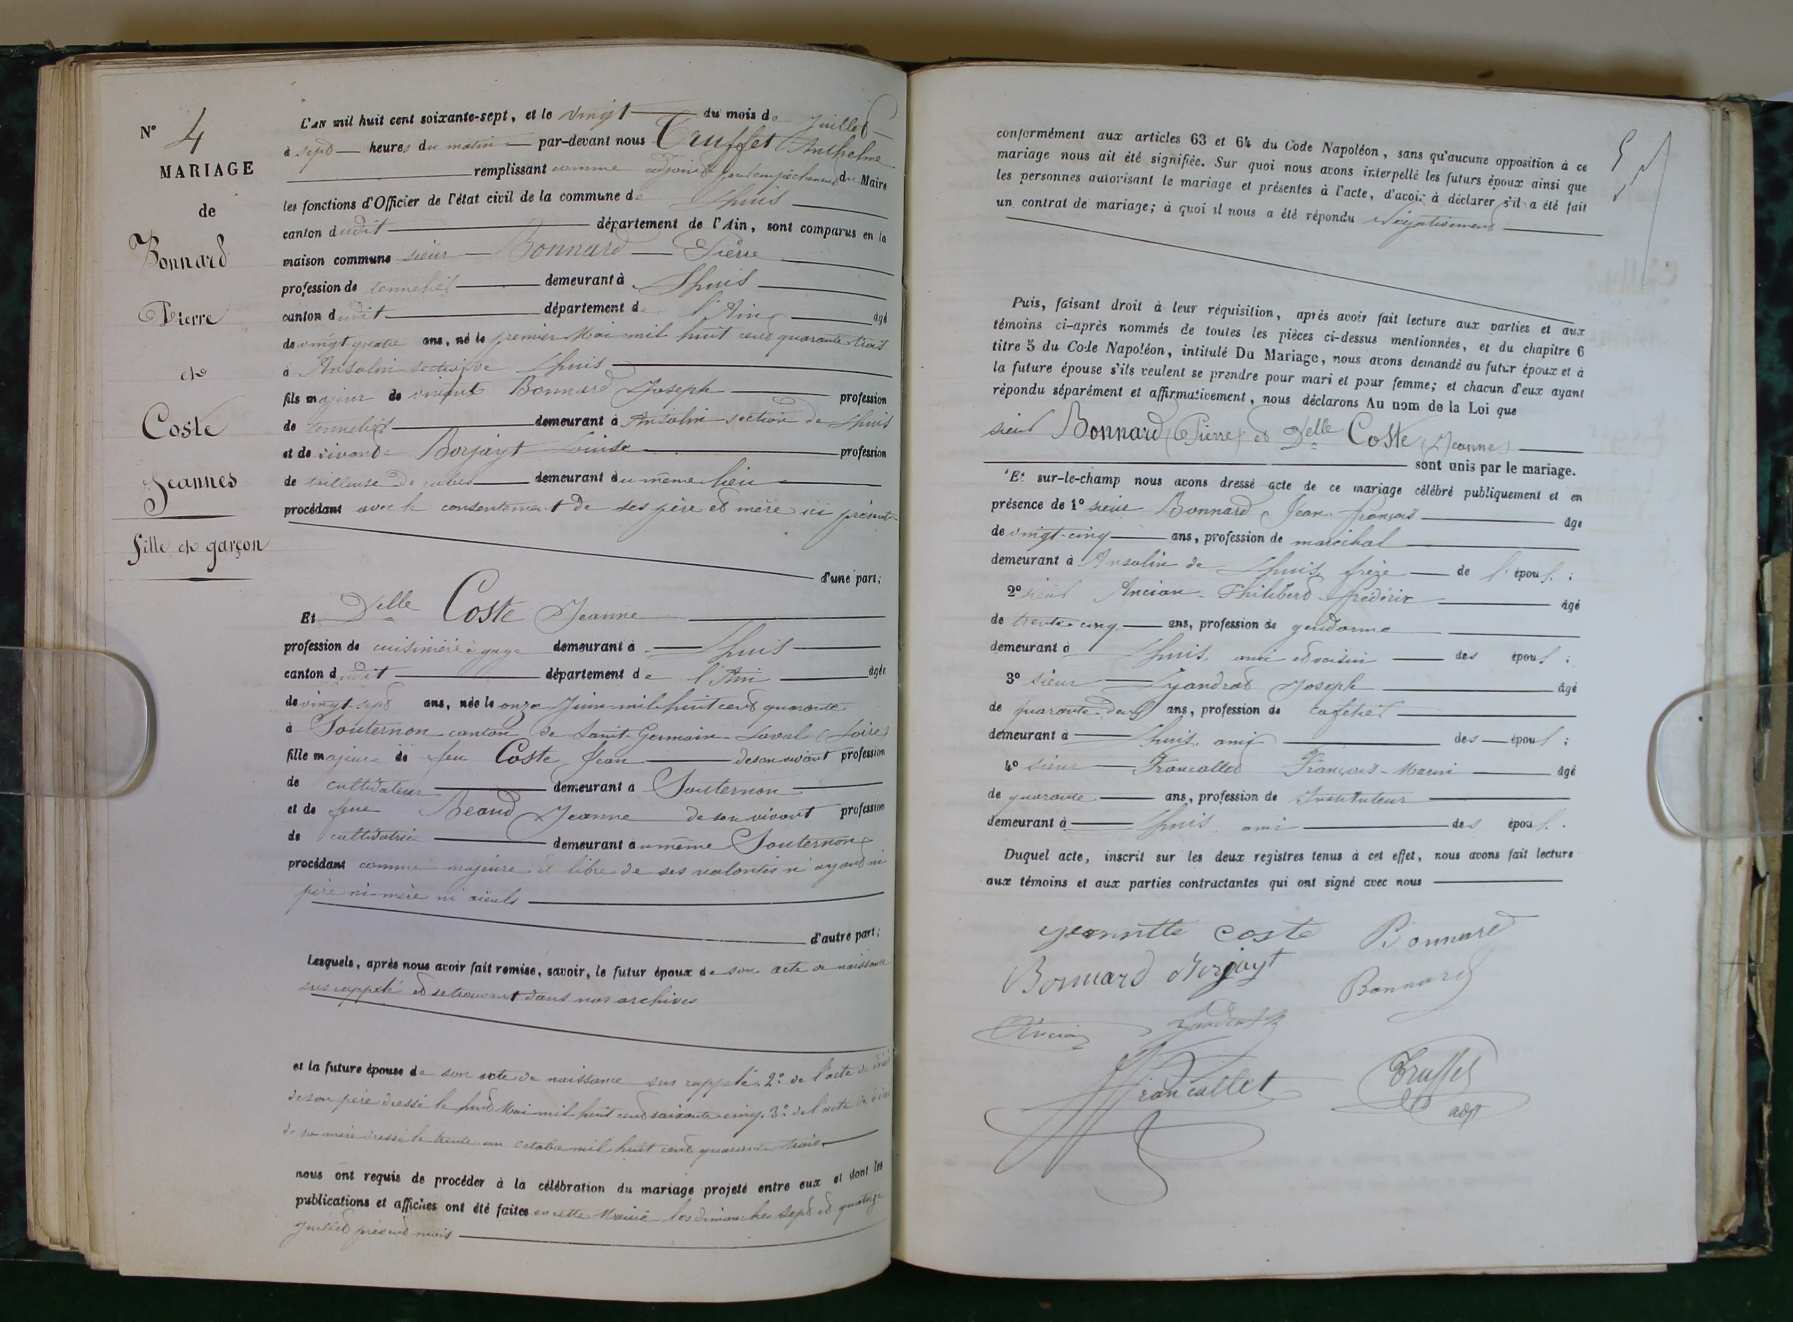 N° 4
MARIAGE
de
Bonnard
Pierre
et
Coste
Jeannes
fille et garçon
L'AN mil huit cent soixante-sept, et le vingt du mois de Juillet
à sept heures du matin par-devant nous Truffet Anthelme
remplissant comme adjoint par empêchement du Maire
les fonctions d'Officier de l'état civil de la commune de Lhuis
canton dudit département de l'Ain, sont comparus en la
maison commune sieur Bonnard Pierre
profession de tonnelier demeurant à Lhuis
canton dudit département de l'Ain âgé
de vingt quatre ans, né le premier Mai mil huit cent quarante trois
à Ansolin section de Lhuis
fils majeur de vivant Bonnard Joseph profession
de tonnelier demeurant à Ansolin section de Lhuis
et de vivande Borjayt Louise profession
de tailleuse de demeurant au même lieu
procédant avec le consentement de ses père et mère ici présents
d'une part;
Et Delle Coste Jeanne
profession de cuisinière à gage demeurant à Lhuis
canton dudit département de l'Ain âgée
de vingt-sept ans, née le onze Juin mil huit cent quarante
à Souternon canton de Saint Germain-Laval (Loire)
fille majeure de feu Coste Jean de son vivant profession
de cultivateur demeurant à Souternon
et de feue Beaud Jeanne de son vivant profession
de cultivatrice demeurant au même Souternon
procédant comme majeure et libre de ses volontés n'ayant ni
père ni mère ni aïeuls
d'autre part;
Lesquels, après nous avoir fait remise, savoir, le futur époux de son acte de naissance
sus rappelé et se trouvant dans nos archives
et la future épouse de son acte de naissance sus rappelé. 2° de l'acte de décès
de son père dressé le huit Mai mil huit cent soixante cinq. 3° de l'acte de décès
de sa mère dressé le trente un octobre mil huit cent quarante trois
nous ont requis de procéder à la célébration du mariage projeté entre eux et dont les
publications et affiches ont été faites en cette Mairie les dimanches sept et quatorze
Juillet présent mois
conformément aux articles 63 et 64 du Code Napoléon, sans qu'aucune opposition à ce
mariage nous ait été signifiée. Sur quoi nous avons interpellé les futurs époux ainsi que
les personnes autorisant le mariage et présentes à l'acte, d'avoir à déclarer s'il a été fait
un contrat de mariage; à quoi il nous a été répondu Négativement
Puis, faisant droit à leur réquisition, après avoir fait lecture aux parties et aux
témoins ci-après nommés de toutes les pièces ci-dessus mentionnées, et du chapitre 6
titre 5 du Code Napoléon, intitulé Du Mariage, nous avons demandé au futur époux et à
la future épouse s'ils veulent se prendre pour mari et pour femme; et chacun d'eux ayant
répondu séparément et affirmativement, nous déclarons Au nom de la Loi que
sieur Bonnard (Pierre) et Delle Coste (Jeanne)
sont unis par le mariage.
Et sur-le-champ nous avons dressé acte de ce mariage célébré publiquement et en
présence de 1° sieur Bonnard Jean-françois âgé
de vingt-cinq ans, profession de maréchal
demeurant à Ansolin de Lhuis, frère de l'époux;
2° sieur Ancian Philibert frédéric âgé
de trente cinq ans, profession de gendarme
demeurant à Lhuis, ami et voisin des époux;
3° sieur Lyandrat Joseph âgé
de quarante-deux ans, profession de cafetier
demeurant à Lhuis, ami des époux;
4° sieur Francallet François-Marie âgé
de quarante ans, profession de Instituteur
demeurant à Lhuis, ami des époux.
Duquel acte, inscrit sur les deux registres tenus à cet effet, nous avons fait lecture
aux témoins et aux parties contractantes qui ont signé avec nous
Jeannette coste Bonnard
Bonnard Borjayt Bonnard
Ancian
Francallet Truffet
adjt